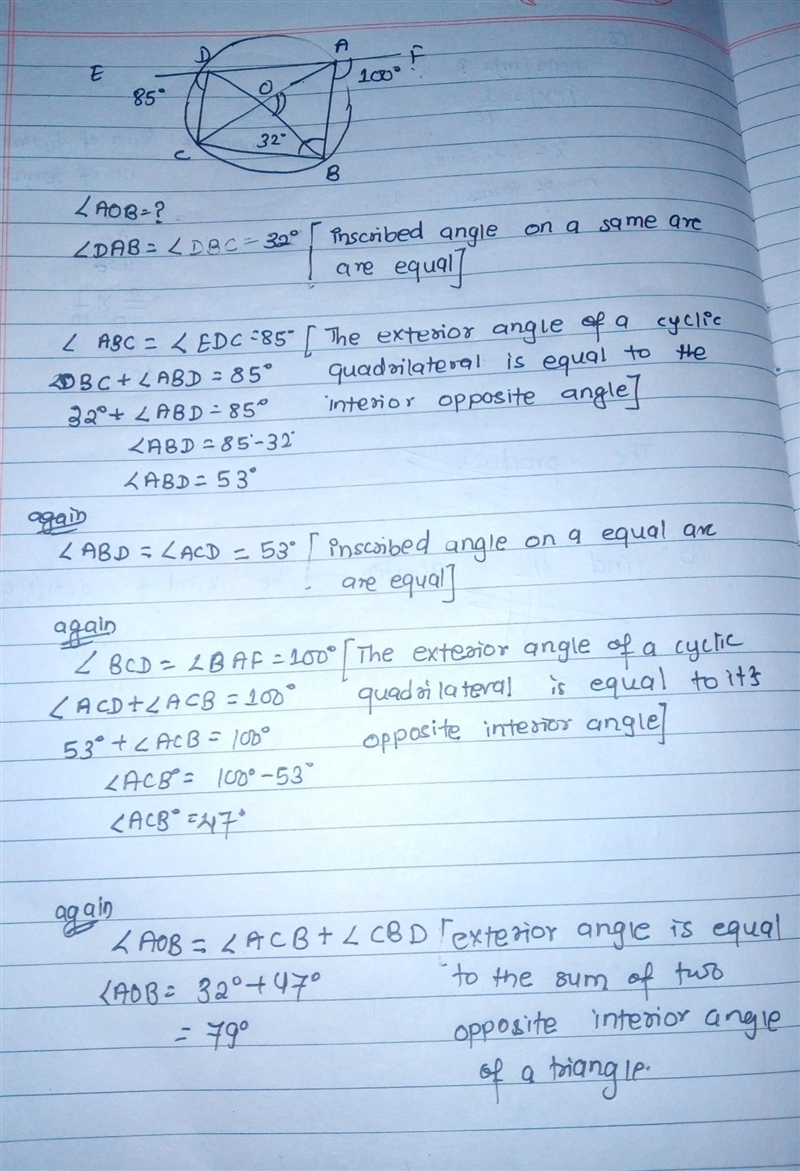 D A F
E 100°
85° O
32°
C B
∠AOB=?
∠DAB = ∠DBC = 32° [inscribed angle on a same arc
are equal]
∠ ABC = ∠EDC = 85° [The exterior angle of a cyclic
∠DBC + ∠ABD = 85° quadrilateral is equal to the
32° + ∠ABD = 85° interior opposite angle]
∠ABD = 85°-32°
∠ABD = 53°
again
∠ABD = ∠ACD = 53° [inscribed angle on a equal arc
are equal]
again
∠ BCD = ∠BAF = 100° [The exterior angle of a cyclic
∠ACD+∠ACB = 100° quadrilateral is equal to its
53° + ∠ACB = 100° opposite interior angle]
∠ACB° = 100° - 53°
∠ACB° = 47°
again
∠AOB = ∠ACB + ∠CBD [exterior angle is equal
∠AOB = 32° + 47° to the sum of two
= 79° opposite interior angle
of a triangle.